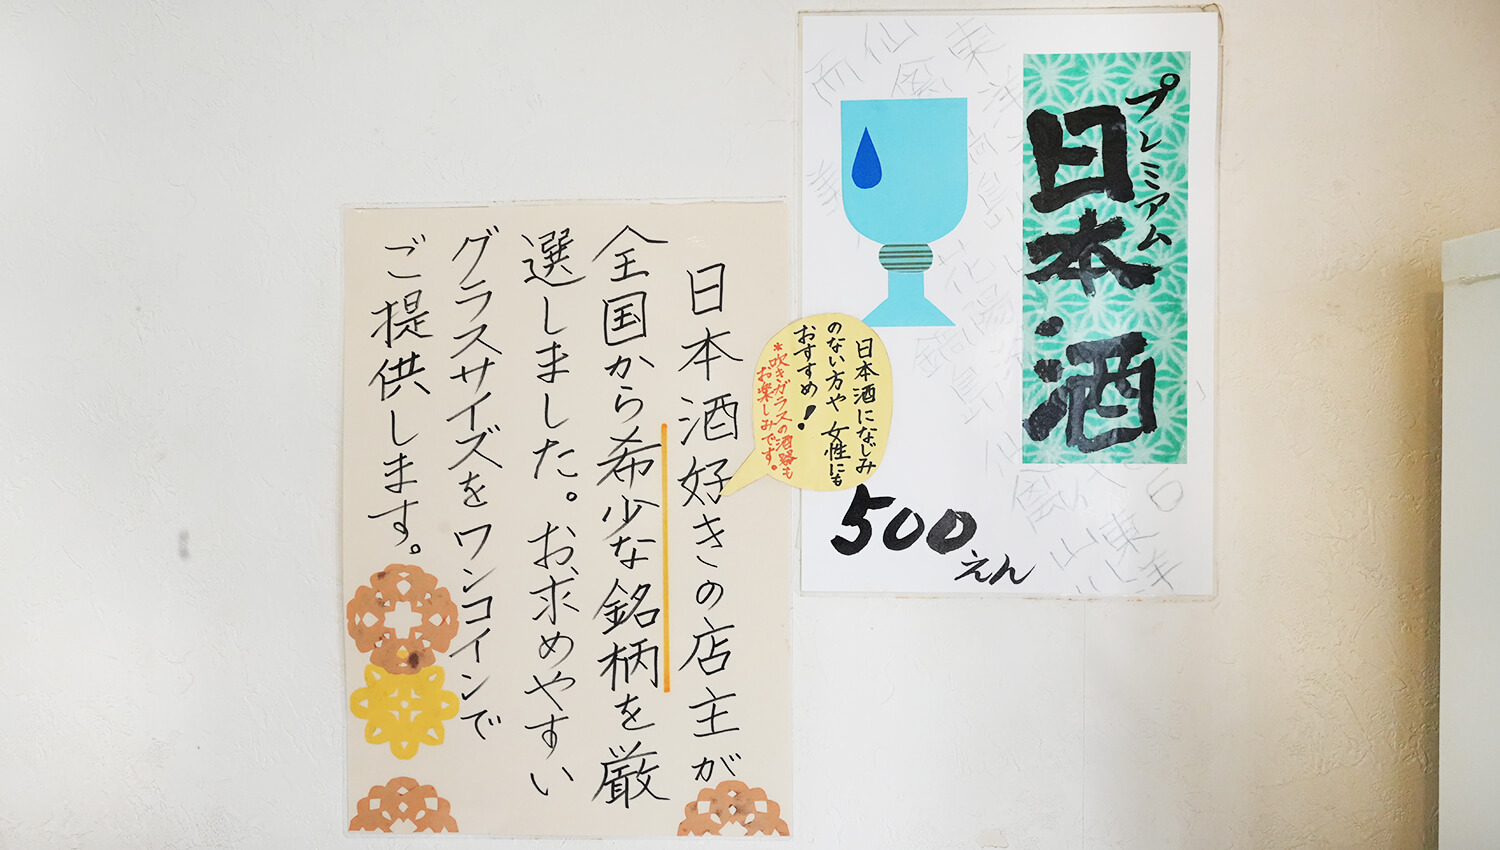 プレミアム
日本酒
500えん
日本酒になじみ
のない方や女性にも
おすすめ!
*吹きガラスの酒器も
お楽しみです。
日本酒好きの店主が
全国から希少な銘柄を厳
選しました。お求めやすい
グラスサイズをワンコインで
ご提供します。